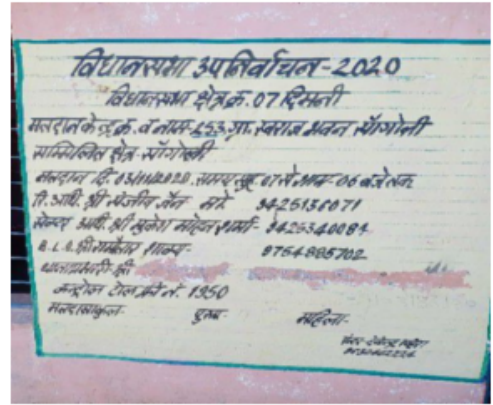 विधानसभा उपनिर्वाचन-2020
विधानसभा क्षेत्र क्र. 07 दिमनी
मतदान केन्द्र क्र. व नाम- ग्रा. स्वराज भवन सांगोली
सम्मिलित क्षेत्र-सांगोली
मतदान दि. 03/11/2020 समय सुबह 07 से शाम-06 बजे तक
रि. आधि. श्री संजीव जैन मो. 9425136071
सेक्टर आधि. श्री मुकेश मोहन शर्मा-
B.L.O. श्री शाक्य- 9754895702
थाना प्रभारी-श्री
कन्ट्रोल टोल फ्री नं. 1950
मतदाता कुल- पुरुष- महिला-